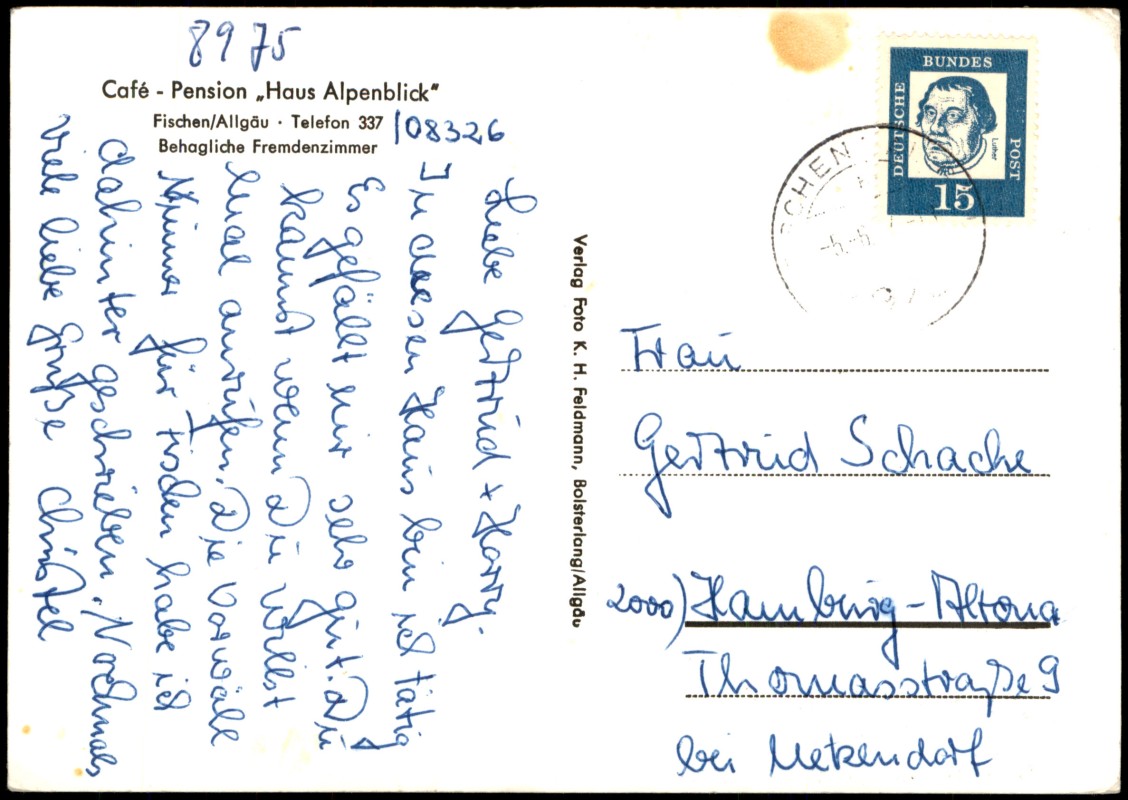 8975
Café - Pension „Haus Alpenblick"
Fischen/Allgäu · Telefon 337 /08326
Behagliche Fremdenzimmer
Liebe Gertrud + Harry.
In diesem Haus bin ich tätig
Es gefällt mir sehr gut. Du
kannst wenn Du willst
mal anrufen. Die Vorwähl
Nummer für Fischen habe ich
dahinter geschrieben. Nochmals
viele liebe Grüße Christel
Verlag Foto K. H. Feldmann, Bolsterlang/Allgäu
DEUTSCHE
BUNDES
POST
Luther
15
Frau
Gertrud Schacke
2000) Hamburg-Altona
Thomasstraße 9
bei Metzendorf